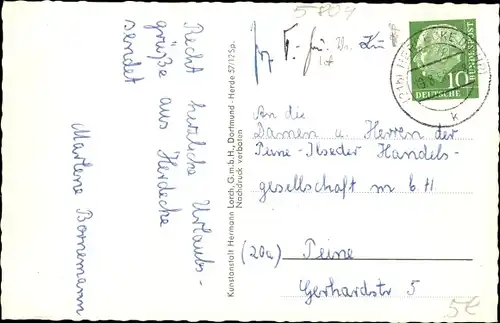 Recht herzliche Urlaubs-
grüße aus Herdecke
sendet
Marlene Bornemann
Kunstanstalt Hermann Lorch, G.m.b.H., Dortmund - Herde 57/12 Sp.
Nachdruck verboten
5804
DEUTSCHE
BUNDESPOST
10
k
An die
Damen u. Herren der
Peine-Ilseder Handels-
gesellschaft m b H
(20a) Peine
Gerhardstr 5
5€